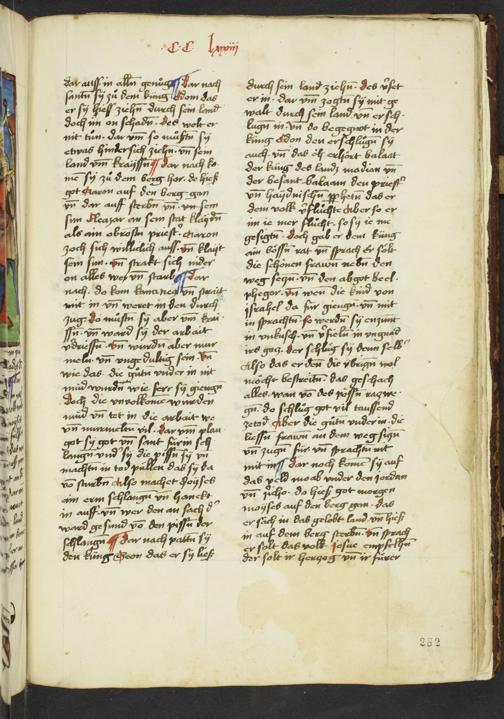 CC lxxiii
dar auff in allen genuog Dar nach
santn sy zu dem kung Edom das
er sy hieß ziehn durch sein land
doch im on schadn. des wolt er
nit tun. dar vm so mustn sy
etwas hindersich ziehn vn sein
land vm
Dar nach ko
me sy zu dem berg hor. do hieß
got Aaron auf den berg gan
vn dar auff sterbn vn sein
sun Eleazar an sein stat klaidn
als ain obrostn priest. Aaron
zoch sich williclich auss vn klait
sein sun. vn strakt sich nider
on alles we vn starb Dar
nach. do kom kananeus vn strait
mit in vn weret in den durch
zug do mustn sy aber vm
vn ward sy der arbait
vdriessn. vn wurdn aber mur
meln vn ungedultig sein. vn
wie das. die gutn under in nit
mud wurdn wie ser sy giengn
doch die unvolkomen wurden
mud vn tet in die arbait we
vn murmeltn vil. dar vm plau
got sy got vn sant furin sch
langn vnd sy die pissn sy vn
machtn in tod das sy da
vo sturbn Also machet Moyses
ain ern schlangn vn hanckt
in auff. vn wer den an sach d
ward gesund vo den pissn der
schlangn Dar nach pattn sy
den kung Seon das er sy ließ
durch sein land ziehn. des
er in. dar vm zogtn sy mit ge
walt durch sein land. vn er sch
lugn in. vn do begegnot in der
kung Og den erschlugn sy
auch. vn das do erhort balaac
der kung des lands madian vn
der besant balaam den priest
vn haydnischn pphetn das er
dem volk vfluchte Aber so er
im ie mer fluchet. so sy ie me
gesigtn. doch gab er dem kung
ain bosn rat vn sprach er solt
die schonen frawn nebn den
weg seczn. vn den abgot beel
phegor. vn wen die kind von
Israhel da fur giengn. vn mit
in sprachtn. so werdn sy enzunt
in unkusch. vn vfieln in ungnad
irs gocz. der schlug sy denn selb
Also das er den die ybrign wol
mocht bestreitn. das geschach
alles wan vo des posn
gn. do schlug got vil tausend
zetod Aber die gutn under in. die
liessn frawn an dem weg siczn
vn zugn fur vn sprachtn nit
mit in Dar noch kome sy auf
das veld moab under den jordan
vn jericho. do hieß got morgen
moyses auf den berg gan. das
er sach in das gelobt land vn hieß
in auf dem berg sterbn. vn sprach
er solt das volk Josue empfelhn
der solt ir herczog vn ir furer
282